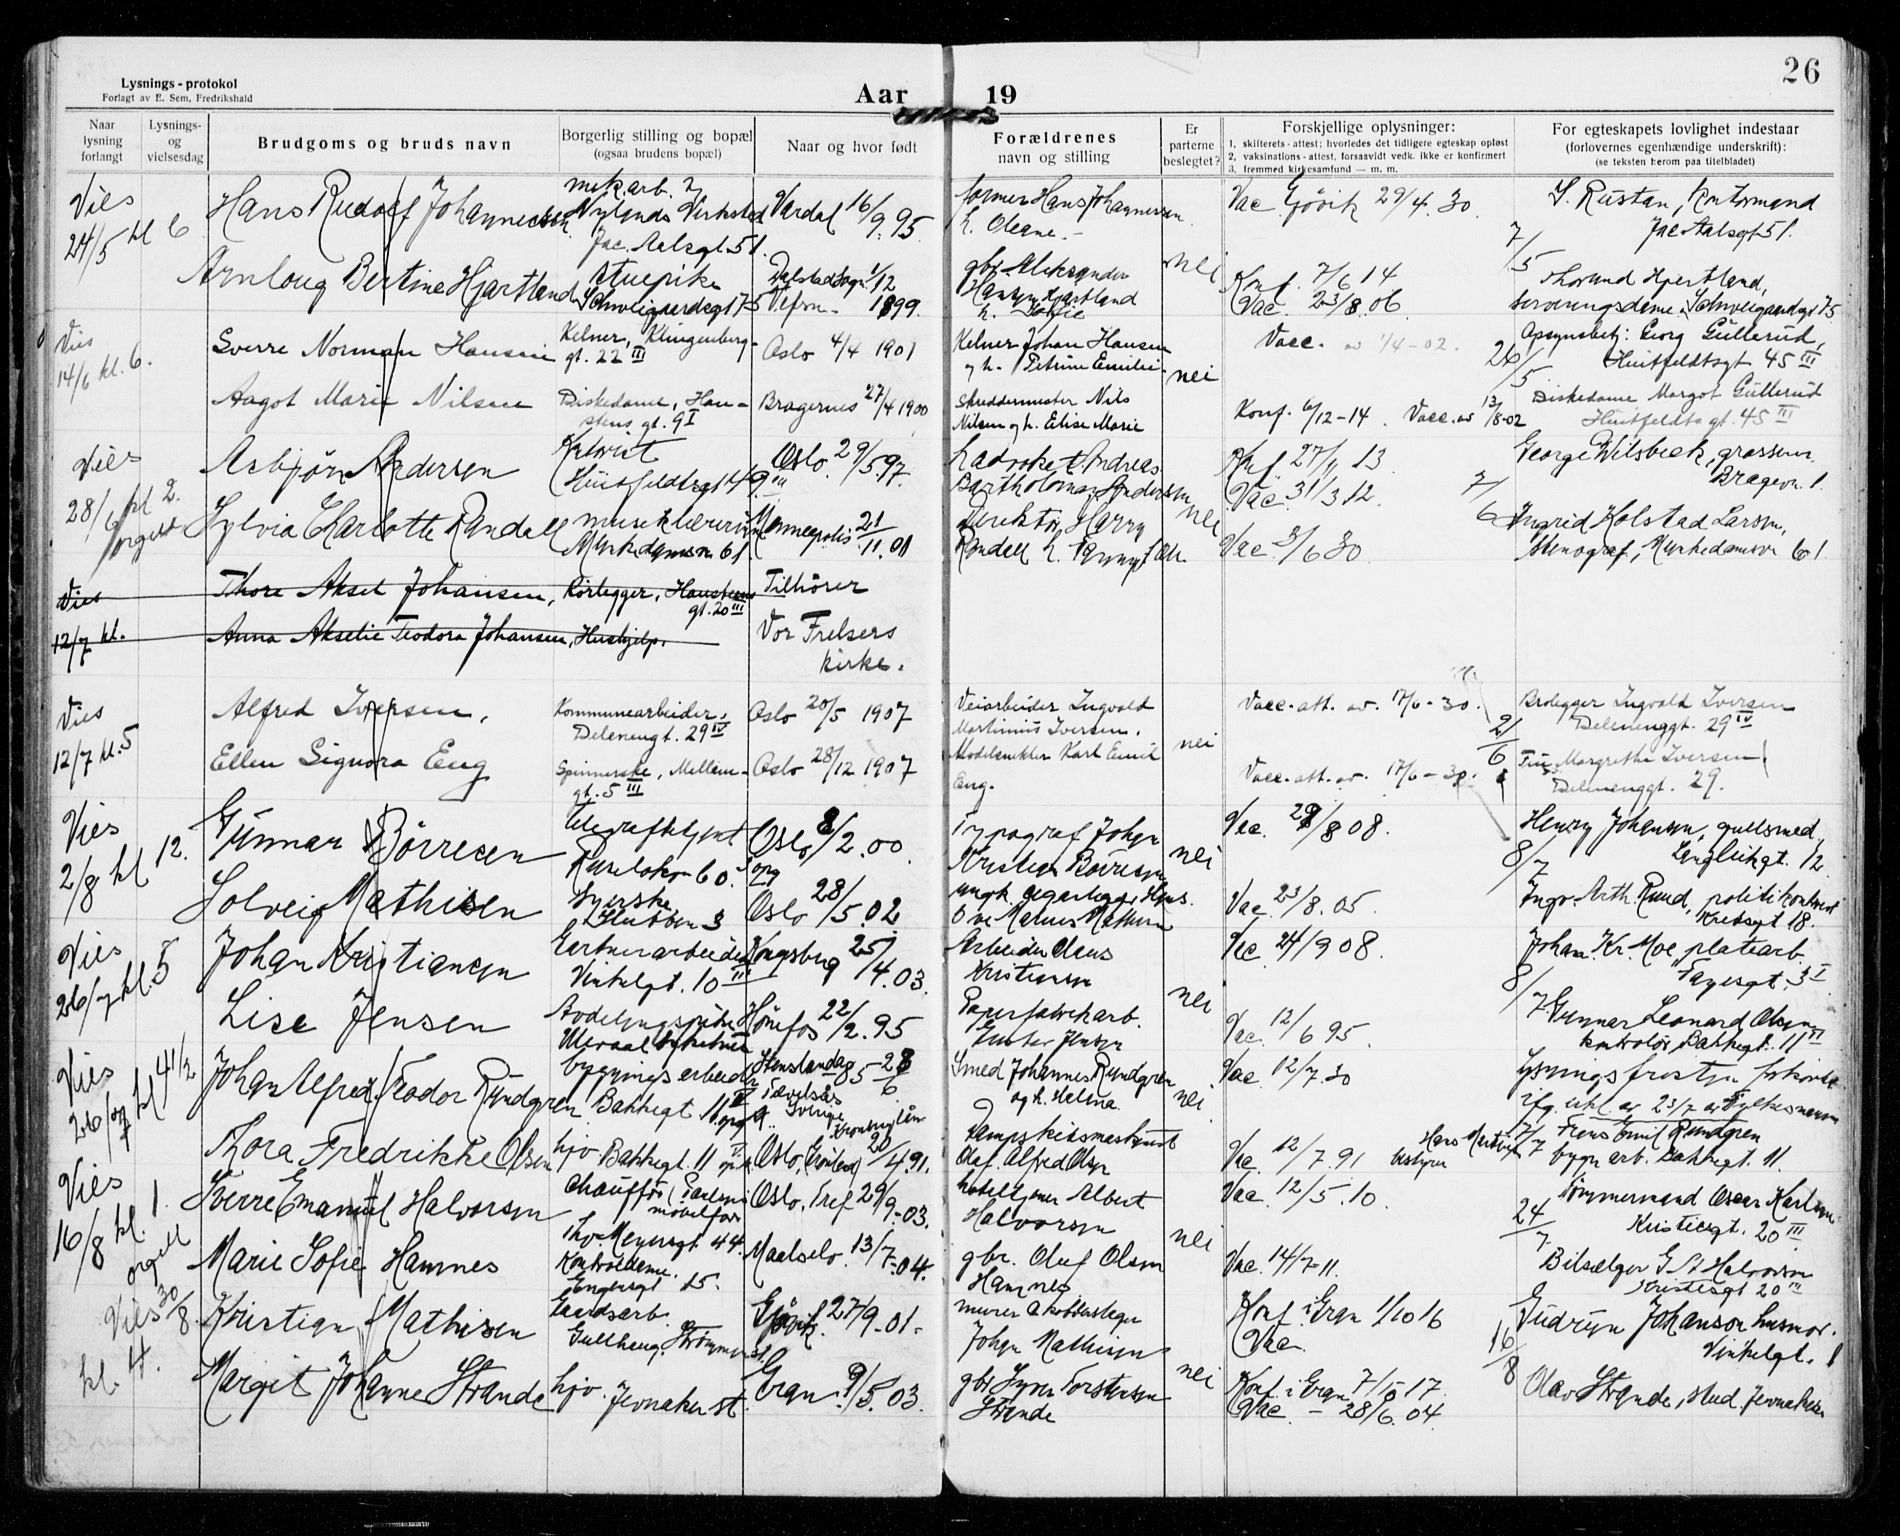 26
Lysnings - protokol
Forlagt av E. Sem, Fredrikshald
Aar 19
Naar lysning forlangt
Lysnings- og vielsesdag
Brudgoms og bruds navn
Borgerlig stilling og bopæl
(ogsaa brudens bopæl)
Naar og hvor født
Forældrenes
navn og stilling
Er parterne beslegtet?
Forskjellige oplysninger:
1, skilterets - attest; hvorledes det tidligere egteskap opløst
2, vaksinations - attest, forsaavidt vedk. ikke er konfirmert
3, fremmed kirkesamfund — m. m.
For egteskapets lovlighet indestaar
(forlovernes egenhændige underskrift):
(se teksten herom paa titelbladet)
Vies 24/5 kl 6
Hans Rudolf Johannessen
mek. arb. Nylands Verksted
Jac. Aalsgt 51.
Vardal 16/9. 95.
former Hans Johannessen
h. Oleane.
Vac Gjøvik 29/4. 30
S. Rustan, kontormand
Jac Aalsgt 51.
7/5
Arnloug Bertine Hjartland
stuepike
Schweigaardsgt 75
Dolstad Sogn 1/12
Vefsn. 1899.
gbr. Aleksander
Hansen Hjartland
h. Sofie
nei
Konf. 7/6 14
Vac. 23/8. 06
Thorund Hjertland,
serveringsdame, Schweigaardsgt 75
Vies 14/6 kl. 6.
Sverre Norman Hansen
Kelner, Klingenberg-
gt. 22 III
Oslo 4/4 1901
Kelner Johan Hansen
og h. Petrine Emilie
nei
Vacc. av 1/4 - 02.
26/5
Opsynsbetj: Georg Gullerud,
Huitfeldtsgt 45 III
Aagot Marie Nilsen
Diskedame, Hau-
stens gt. 9 I
Bragernes 27/4 1900
Skreddermester Nils
Nilsen og h. Elise Marie
Konf. 6/12 - 14. Vacc. av 13/8-02
Diskedame Margot Gullerud
Huitfeldts gt. 45 III
Vies 28/6 kl 2.
orgel
Asbjørn Andersen
Huitfeldtsgt 49 III
Oslo. 29/5 97.
Andreas
Bartholomæus Andersen
nei
Konf 27/11 13
Vac. 31/3 12.
7/6
George Wilsbeck, grosserer
Bragevn. 1.
Sylvia Charlotte Randall
musiklærerinne
Munkedamsvn 61
Minneapolis 21/11. 01
direktør Harry
Randall h. Fanny
Vac 3/6 30
Ingrid Kolstad Larsen,
stenograf, Munkedamsvn 61
Vies
12/7 kl.
Thore Aksel Johansen,
Rørlegger, Haustens
gt. 20 III
Tilhører
Anna Akselie Teodora Johansen,
Hushjelp.
Vor Frelsers
kirke.
Vies 12/7 kl. 5
Alfred Iversen,
Kommunearbeider,
Delenengt. 29 IV
Oslo 20/5 1907
Veiarbeider Ingvald
Martinius Iversen.
nei
Vacc. att. av. 17/6 - 30.
21/6
Brolegger Ingvald Iversen
Delenenggt. 29 IV
Ellen Signora Eng
Spinnerske, Mellem-
gt. 5 III
Oslo 28/12 1907
Modelsnekker Karl Emil
Eng.
Vacc. att. av. 17/6 - 30.
Fru Margrethe Iversen
Delenenggt. 29.
Vies 2/8 kl 12.
Gunnar Børresen
telegrafbetjent
60.
Oslo 8/2. 00.
Typograf Johan
Kristian Børresen
nei
Vac. 29/8 08.
8/7
Henry Johansen, gullsmed,
12
Solveig Mathisen
Syerske
Stubben 3
Oslo 28/5. 02
Vac. 23/8. 05.
Ingv. Arth. Ruud, politikonst.
18.
Vies 26/7 kl. 5
Johan Kristiansen
Gartnerarbeider
Vinkelgt. 10 III
Kongsberg 25/4. 03.
Arbeider Claus
Kristiansen
nei
Vac. 24/9 08.
8/7
Johan Kr. Moe platearb.
Fagesgt. 3 I
Lise Jensen
Avdelingspike
Ullevaal Sykehus
Hønefos 22/2. 95
Papirfabrikarb.
Gustav Jensen
Vac. 12/6 95.
Gunnar Leonard Olsen
kontrolør, Bakkegt. 11 VI
Vies 26/7 kl 4 1/2
Johan Alfred Teodor Rundgren
bygningsarbeider
Bakkegt 11 V opg
Sverige
Smed Johannes Rundgren
og h. Helena
nei
Vac 12/7 30
Lysningsfristen forkortet
ifg. skl. av 23/7 av Fylkesmannen
Frans Emil Rundgren
bygn arb. Bakkegt. 11.
Thora Fredrikke Olsen
hjv Bakkegt. 11
Oslo, Grønland 20/4 91.
Olaf Alfred Olsen
Vac. 12/7. 91
Vies 16/8 kl. 1.
orgel
Sverre Emanuel Halvorsen
Chauffør
Ths Meyersgt 44.
Oslo. Tref 29/9-03.
hoteltjener Albert
Halvorsen
nei
Vac. 12/5. 10.
24/7
Tømmermand Oscar Karlsen
Kristiesgt. 20 III
Marie Sofie Hamnes
Engensgt 15.
Maalselv. 13/7.-04.
gbr. Oluf Olsen
Hamnes
Vac. 14/7-11.
Bilsælger G. Halvorsen
Kristiesgt 20 III
Vies 30/8. kl. 4.
Kristian Mathisen
Gaardsarb.
Gullhaug, Strømmen st.
Gjøvik. 27/9-01-
Johan Mathisen
nei
Konf i Gran 1/10 16
Vac.
16/8
Gudrun Johanson husmor.
Vinkelgt. 1
Margit Johanne Strande
hjv. Jevnaker st.
Gran. 9/5. 03.
gbr Iver Torstensen
Strande
Konf. i Gran 7/10 17.
Vac. - 28/6. 04.
Olav Strande, stud. Jevnaker